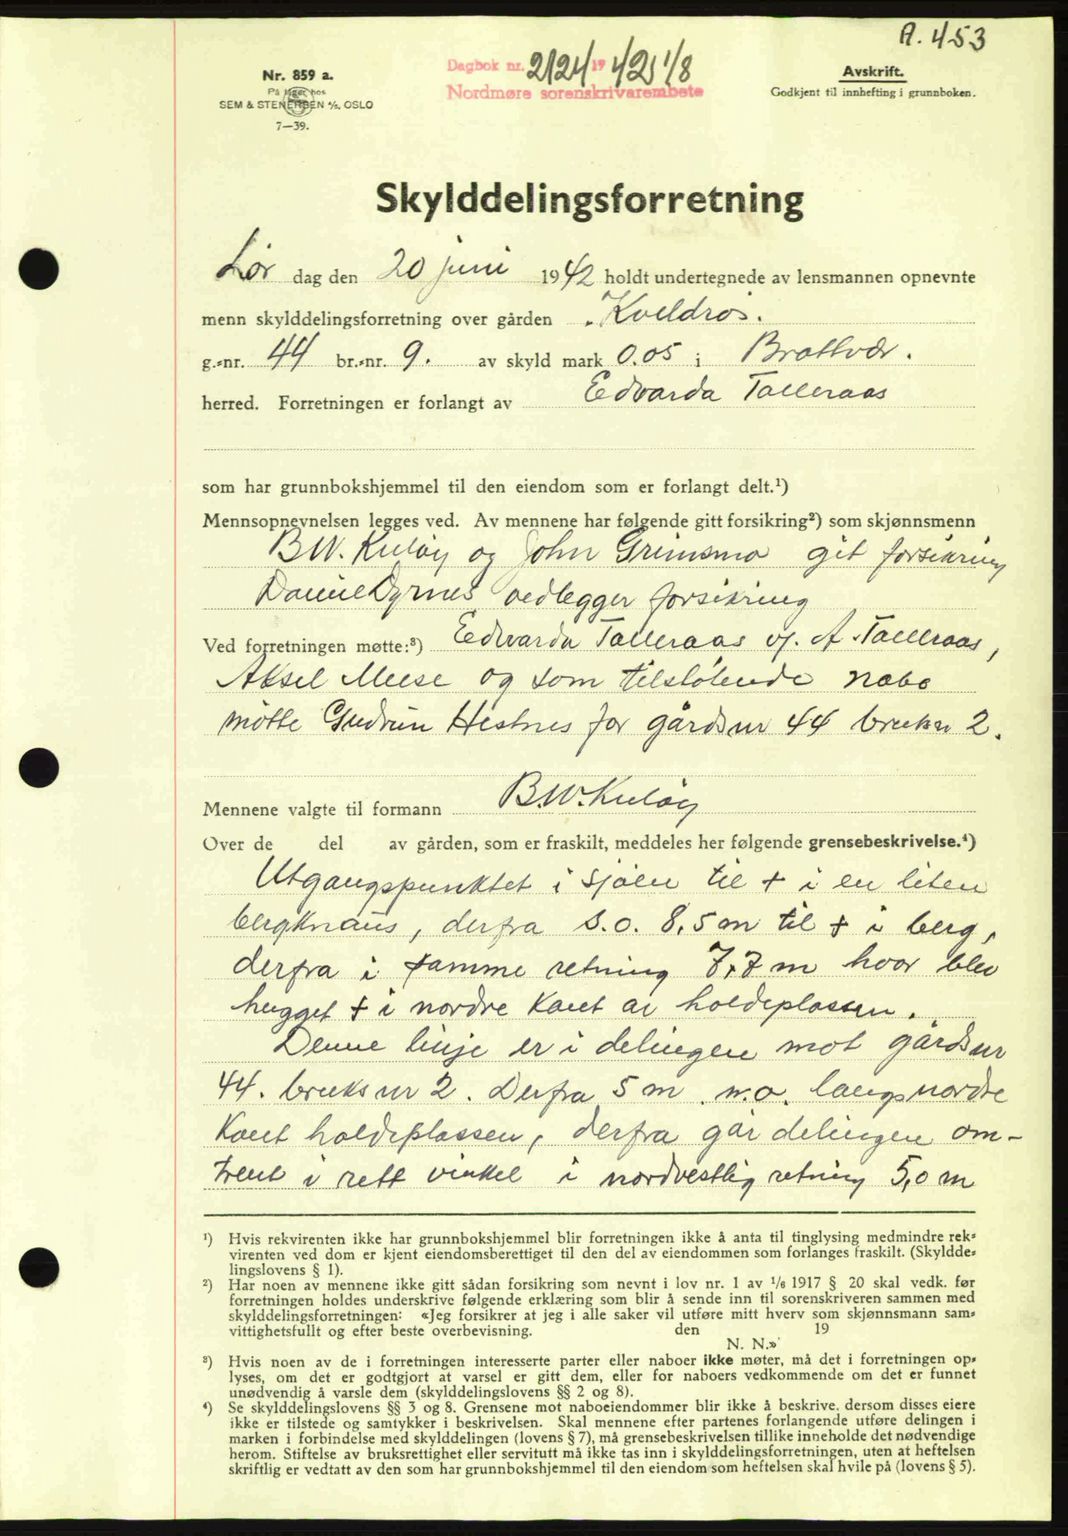 A. 453
Nr. 859 a.
På lager hos
SEM & STENERSEN A/S. OSLO
7—39.
Dagbok nr. 2124 1942 1/8
Nordmøre sorenskrivarembete
Avskrift.
Godkjent til innhefting i grunnboken.
Skylddelingsforretning
Lør dag den 20 juni 1942 holdt undertegnede av lensmannen opnevnte
menn skylddelingsforretning over gården "Kveldro".
g.-nr. 44 br.-nr. 9. av skyld mark 0.05 i Brattvær.
herred. Forretningen er forlangt av Edvarda Talleraas
som har grunnbokshjemmel til den eiendom som er forlangt delt.¹)
Mennsopnevnelsen legges ved. Av mennene har følgende gitt forsikring²) som skjønnsmenn
B.W. Kuløy og John Grimsmo git forsikring
Daniel Dyrnes vedlegger forsikring
Ved forretningen møtte:³) Edvarda Talleraas v/. A. Talleraas,
Aksel Meese og som tilstøtende nabo
møtte Gudrun Hestnes for gårdsnr 44 bruksnr 2.
Mennene valgte til formann B.W. Kuløy
Over de del av gården, som er fraskilt, meddeles her følgende grensebeskrivelse.⁴)
Utgangspunktet i sjøen til + i en liten
bergknaus, derfra s.o. 8,5 m til + i berg,
derfra i samme retning 7,7 m hvor blev
hugget + i nordre kant av holdeplassen.
Denne linje er i delingen mot gårdsnr
44. bruksnr 2. Derfra 5 m. n.o. langs nordre
Kant holdeplassen, derfra går delingen om-
trent i rett vinkel i nordvestlig retning 5,0 m
¹) Hvis rekvirenten ikke har grunnbokshjemmel blir forretningen ikke å anta til tinglysing medmindre rek-
virenten ved dom er kjent eiendomsberettiget til den del av eiendommen som forlanges fraskilt. (Skyldde-
lingslovens § 1).
²) Har noen av mennene ikke gitt sådan forsikring som nevnt i lov nr. 1 av 1/6 1917 § 20 skal vedk. før
forretningen holdes underskrive følgende erklæring som blir å sende inn til sorenskriveren sammen med
skylddelingsforretningen: «Jeg forsikrer at jeg i alle saker vil utføre mitt hverv som skjønnsmann sam-
vittighetsfullt og efter beste overbevisning. den 19
N. N.»
³) Hvis noen av de i forretningen interesserte parter eller naboer ikke møter, må det i forretningen op-
lyses, om det er godtgjort at varsel er gitt dem, eller for naboers vedkommende om det er funnet
unødvendig å varsle dem (skylddelingslovens §§ 2 og 8).
⁴) Se skylddelingslovens §§ 3 og 8. Grensene mot naboeiendommer blir ikke å beskrive, dersom disses eiere
ikke er tilstede og samtykker i beskrivelsen. Skal mennene efter partenes forlangende utføre delingen i
marken i forbindelse med skylddelingen (lovens § 7), må grensebeskrivelsen tillike inneholde det nødvendige
herom. Stiftelse av bruksrettighet eller servitutt må ikke tas inn i skylddelingsforretningen, uten at heftelsen
skriftlig er vedtatt av den som har grunnbokshjemmel til den eiendom som heftelsen skal hvile på (lovens § 5).